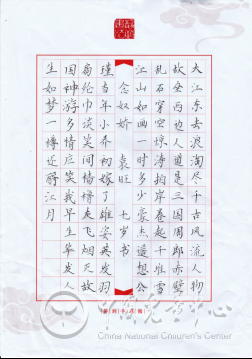 大江东去浪淘尽千古风流人物
故垒西边人道是三国周郎赤壁
乱石穿空惊涛拍岸卷起千堆雪
江山如画一时多少豪杰遥想公
念奴娇 袁旺 七岁书
瑾当年小乔初嫁了雄姿英发羽
扇纶巾谈笑间樯橹灰飞烟灭故
国神游多情应笑我早生华发人
生如梦一樽还酹江月
中国儿童中心
China National Children's Center